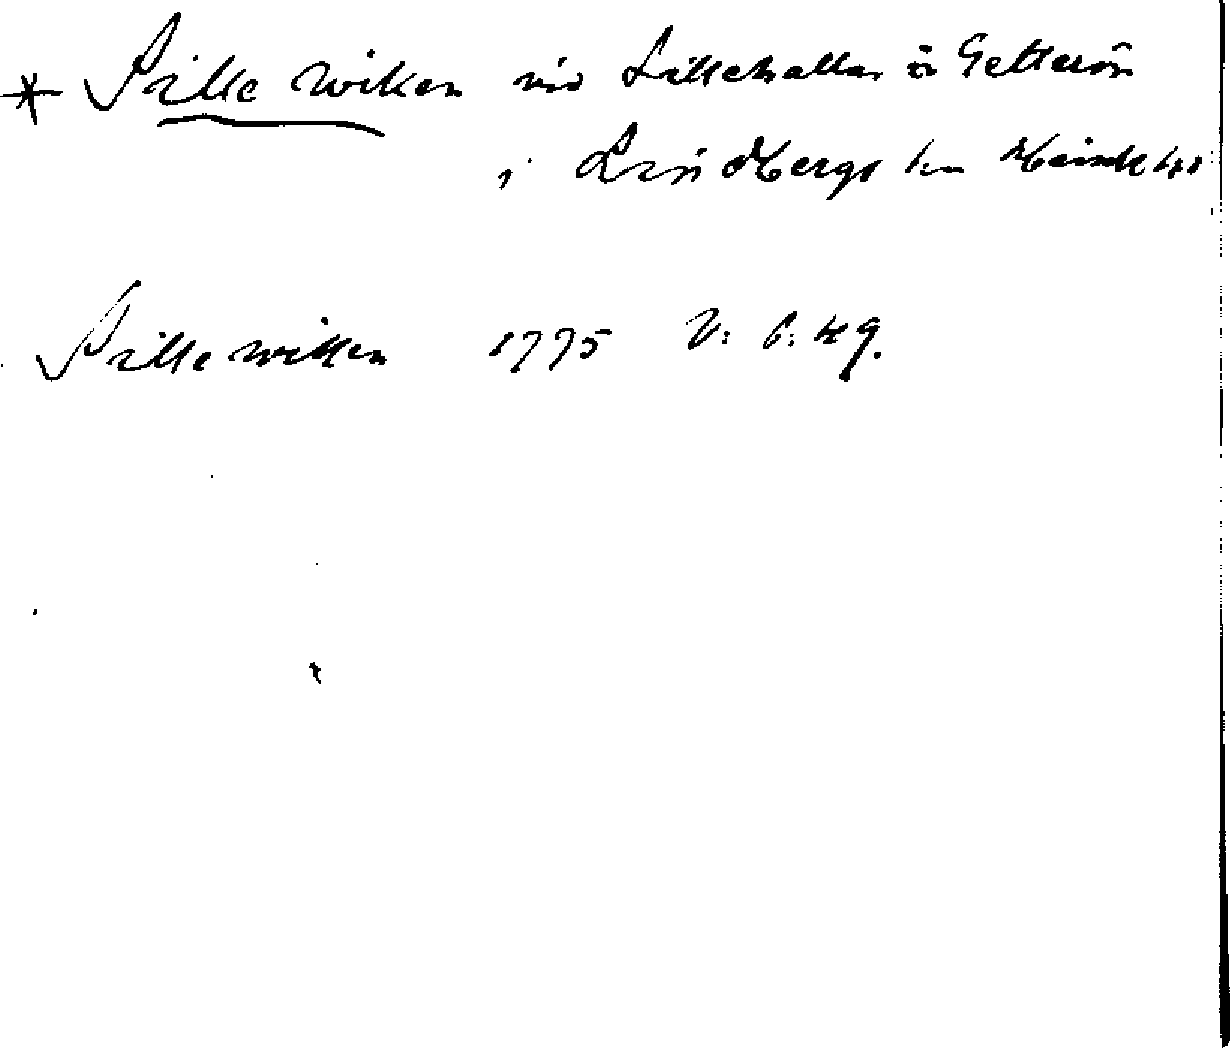 * Sille wiken vid Lillehallar å Getterön
i Lindbergs sn Himle hd
Sille wiken 1775 V: 6: 49.